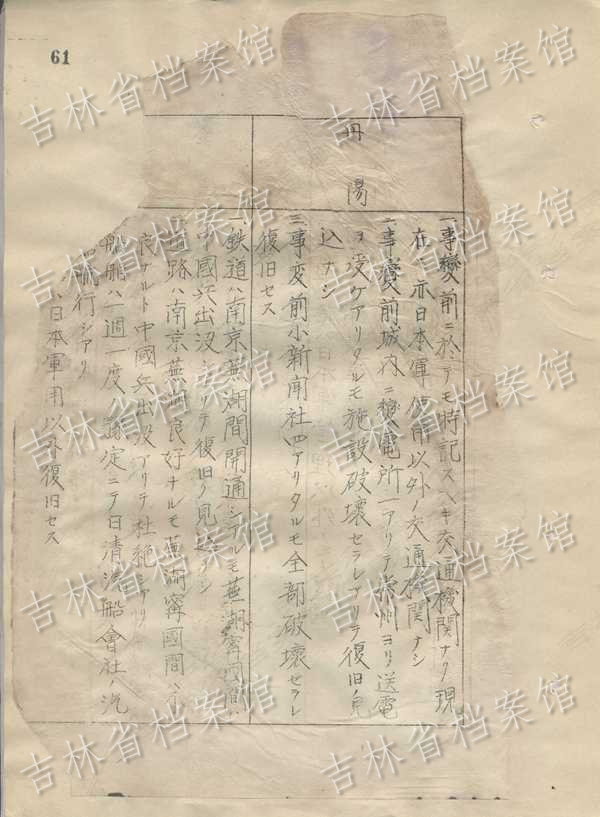 61
丹陽
一、事變前ニ於テモ特記スヘキ交通機関ナク現
在ニ亦日本軍使用以外ノ交通機関ナシ
二、事變前城内ニ變電所一アリテ常州ヨリ送電
ヲ受ケアリタルモ施設破壊セラレアリテ復旧ノ見
込ナシ
三、事変前小新聞社四アリタルモ全部破壊セラレ
復旧セス
一、鉄道ハ南京蕪湖間開通シアルモ蕪湖寧国間ハ
中國兵出没シアリテ復旧ノ見込ナシ
道路ハ南京蕪湖良好ナルモ蕪湖寧國間ハ不
良ナルト中國兵出没アリテ杜絶シアリ
船舶ハ一週一度 定ニテ日清汽船會社ノ汽
船航行シアリ
ハ日本軍用以外復旧セス
吉林省档案馆
吉林省档案馆
吉林省档案馆
吉林省档案馆
吉林省档案馆
吉林省档案馆
吉林省档案馆
吉林省档案馆
吉林省档案馆
吉林省档案馆